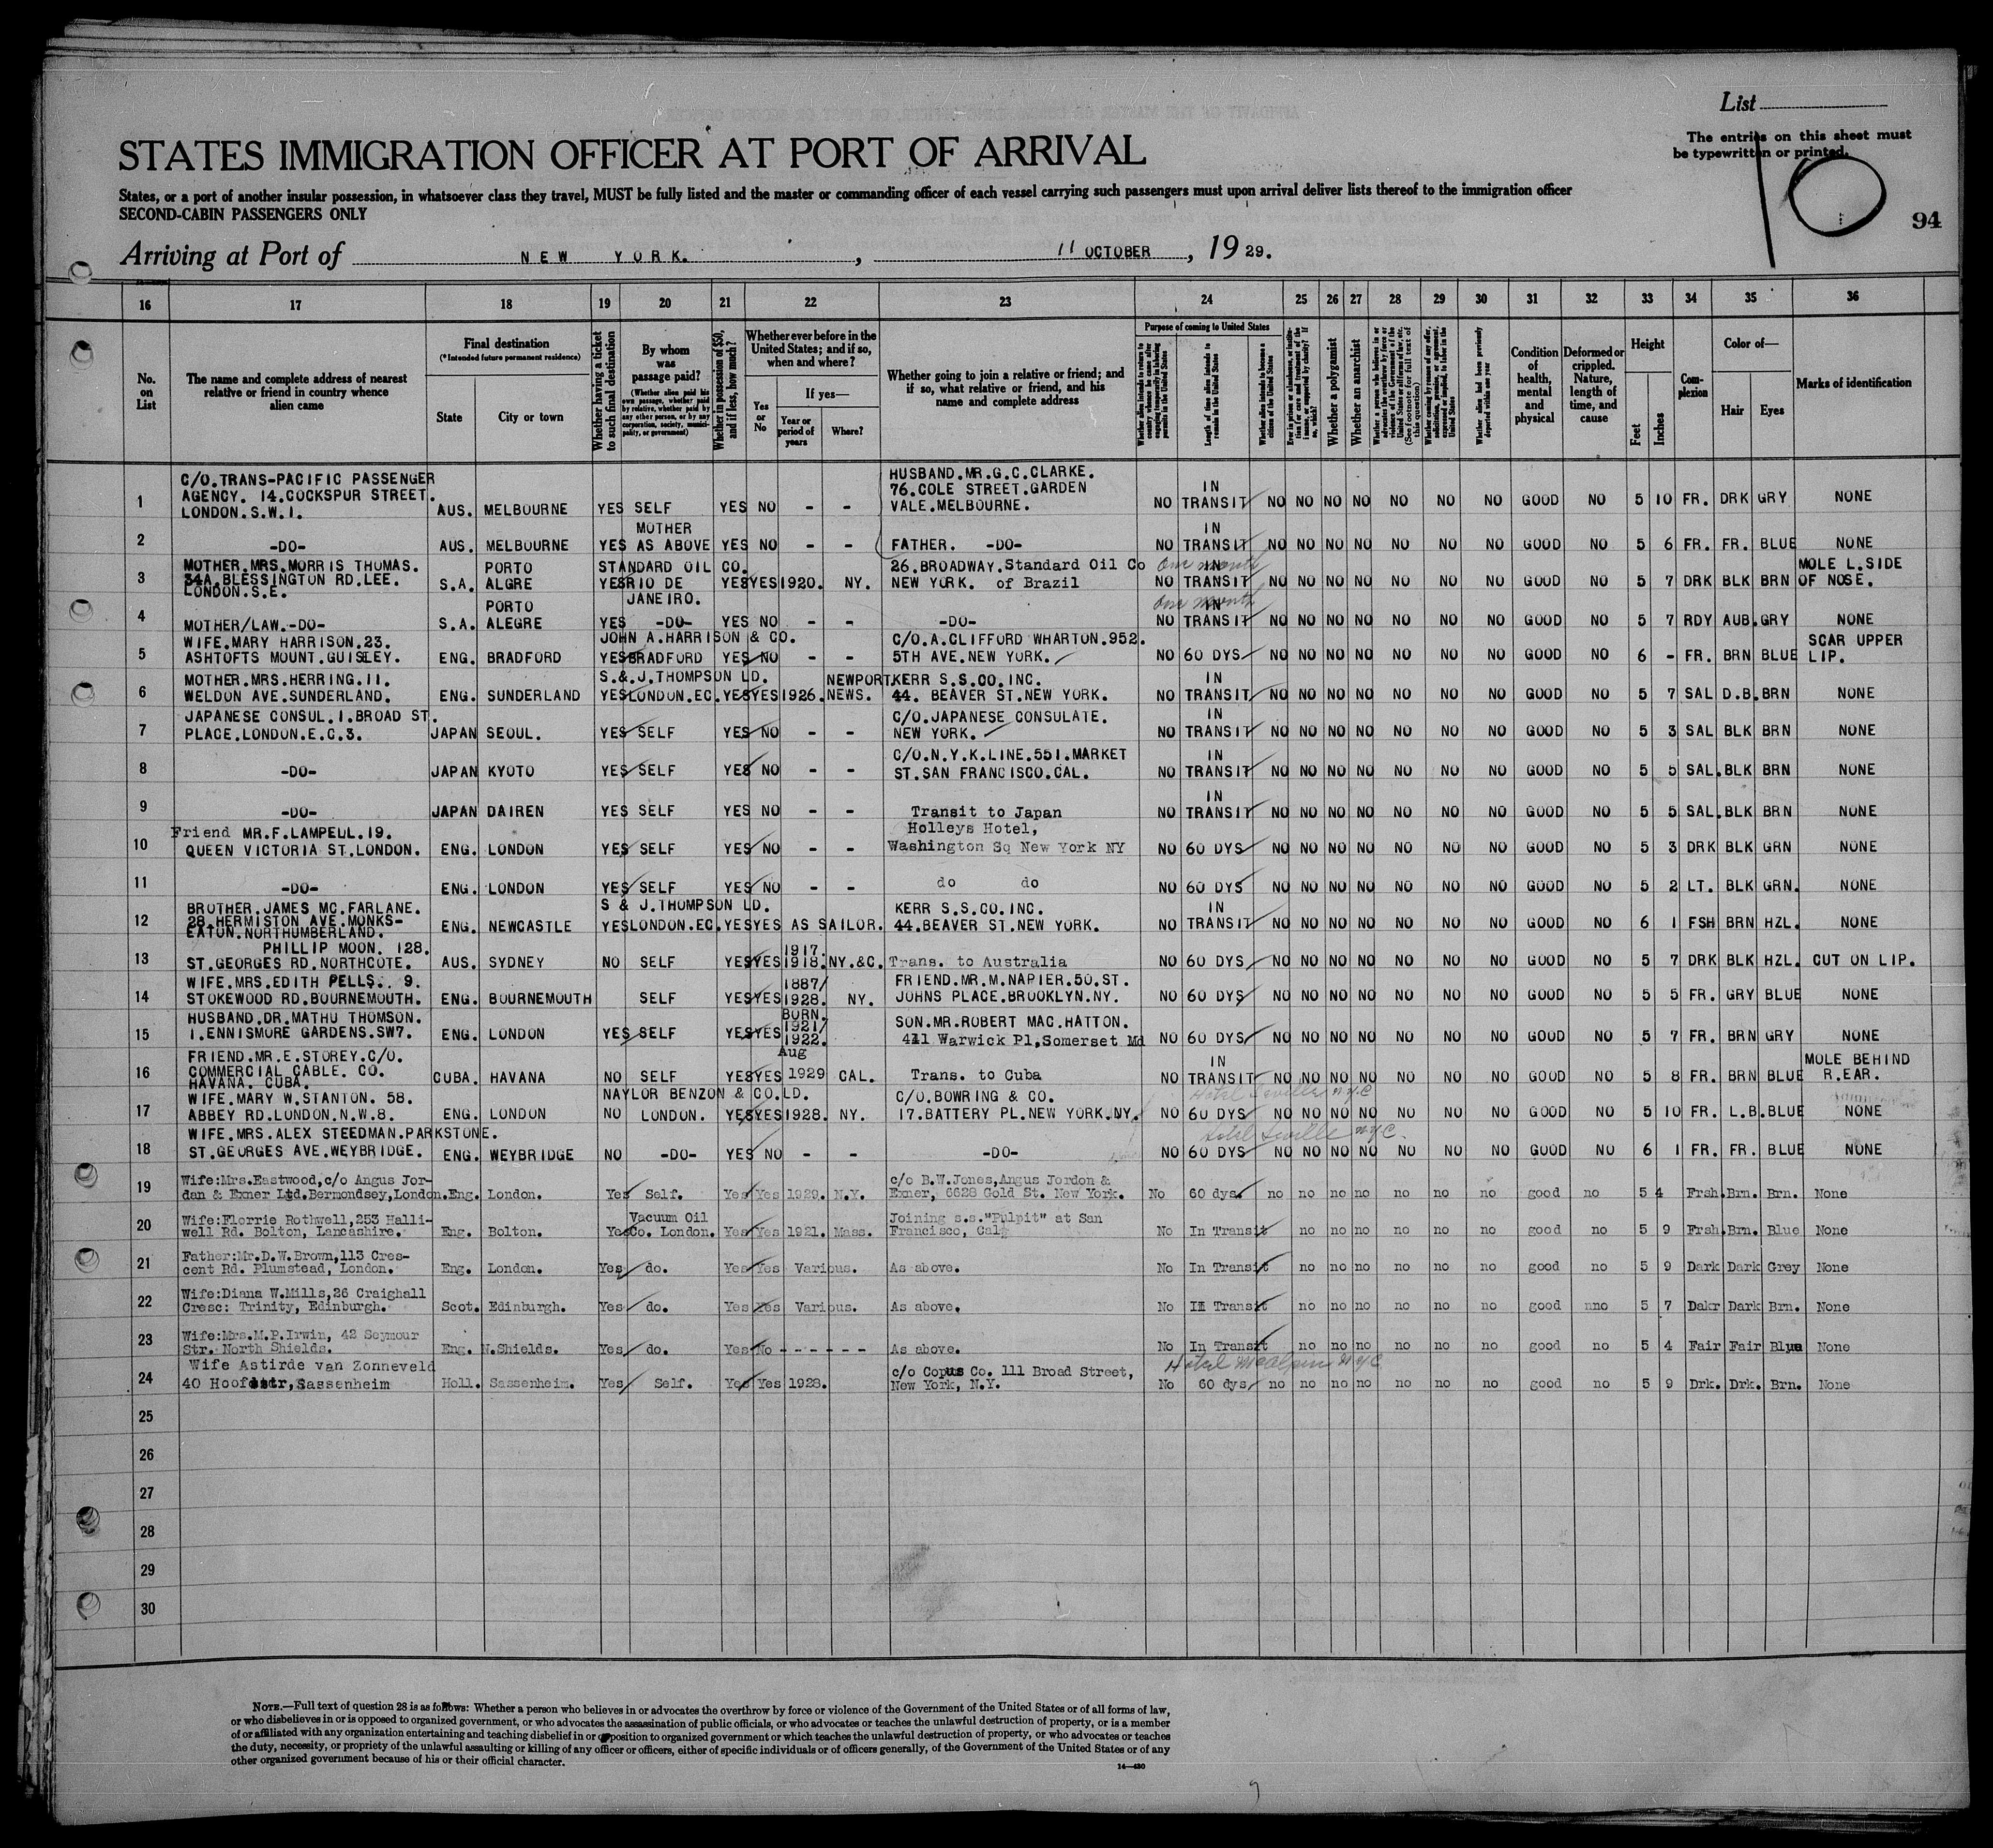 List
The entries on this sheet must
be typewritten or printed.
10
94
STATES IMMIGRATION OFFICER AT PORT OF ARRIVAL
States, or a port of another insular possession, in whatsoever class they travel, MUST be fully listed and the master or commanding officer of each vessel carrying such passengers must upon arrival deliver lists thereof to the immigration officer
SECOND-CABIN PASSENGERS ONLY
Arriving at Port of NEW YORK. , 11 OCTOBER , 19 29.
16 17 18 19 20 21 22 23 24 25 26 27 28 29 30 31 32 33 34 35 36
No. on List
The name and complete address of nearest relative or friend in country whence alien came
Final destination
(*Intended future permanent residence)
State
City or town
Whether having a ticket to such final destination
By whom was passage paid?
(Whether alien paid his own passage, whether paid by relative, whether paid by any other person, or by any corporation, society, municipality, or government)
Whether in possession of $50, and if less, how much?
Whether ever before in the United States; and if so, when and where?
Yes or No
If yes—
Year or period of years
Where?
Whether going to join a relative or friend; and if so, what relative or friend, and his name and complete address
Purpose of coming to United States
Length of time alien intends to remain in the United States
Whether alien intends to become a citizen of the United States
Whether a polygamist
Whether an anarchist
Condition of health, mental and physical
Deformed or crippled. Nature, length of time, and cause
Height
Feet
Inches
Complexion
Color of—
Hair
Eyes
Marks of identification
1 C/O.TRANS-PACIFIC PASSENGER AGENCY. 14.COCKSPUR STREET. LONDON.S.W.1. AUS. MELBOURNE YES SELF YES NO - - HUSBAND.MR.G.C.CLARKE. 76.COLE STREET.GARDEN VALE.MELBOURNE. NO IN TRANSIT NO NO NO NO NO NO NO GOOD NO 5 10 FR. DRK GRY NONE
2 -DO- AUS. MELBOURNE YES MOTHER AS ABOVE YES NO - - FATHER. -DO- NO IN TRANSIT NO NO NO NO NO NO NO GOOD NO 5 6 FR. FR. BLUE NONE
3 MOTHER.MRS.MORRIS THOMAS. 34A.BLESSINGTON RD.LEE. LONDON.S.E. S.A. PORTO ALGRE YES STANDARD OIL CO. RIO DE JANEIRO. YES YES 1920. NY. 26.BROADWAY.Standard Oil Co NEW YORK. of Brazil NO One month IN TRANSIT NO NO NO NO NO NO NO GOOD NO 5 7 DRK BLK BRN MOLE L.SIDE OF NOSE.
4 MOTHER/LAW.-DO- S.A. PORTO ALEGRE YES -DO- YES NO - - -DO- NO One month IN TRANSIT NO NO NO NO NO NO NO GOOD NO 5 7 RDY AUB. GRY NONE
5 WIFE.MARY HARRISON.23. ASHTOFTS MOUNT.GUISLEY. ENG. BRADFORD YES JOHN A.HARRISON & CO. BRADFORD YES NO - - C/O.A.CLIFFORD WHARTON.952. 5TH AVE.NEW YORK. NO 60 DYS NO NO NO NO NO NO NO GOOD NO 6 - FR. BRN BLUE SCAR UPPER LIP.
6 MOTHER.MRS.HERRING.11. WELDON AVE.SUNDERLAND. ENG. SUNDERLAND YES S.& J.THOMPSON LD. LONDON.EC. YES YES 1926. NEWPORT NEWS. KERR S.S.CO.INC. 44. BEAVER ST.NEW YORK. NO IN TRANSIT NO NO NO NO NO NO NO GOOD NO 5 7 SAL D.B. BRN NONE
7 JAPANESE CONSUL.1.BROAD ST. PLACE.LONDON.E.C.3. JAPAN SEOUL. YES SELF YES NO - - C/O.JAPANESE CONSULATE. NEW YORK. NO IN TRANSIT NO NO NO NO NO NO NO GOOD NO 5 3 SAL BLK BRN NONE
8 -DO- JAPAN KYOTO YES SELF YES NO - - C/O.N.Y.K.LINE.551.MARKET ST.SAN FRANCISCO.CAL. NO IN TRANSIT NO NO NO NO NO NO NO GOOD NO 5 5 SAL. BLK BRN NONE
9 -DO- JAPAN DAIREN YES SELF YES NO - - Transit to Japan NO IN TRANSIT NO NO NO NO NO NO NO GOOD NO 5 5 SAL. BLK BRN NONE
10 Friend MR.F.LAMPELL.19. QUEEN VICTORIA ST.LONDON. ENG. LONDON YES SELF YES NO - - Holleys Hotel, Washington Sq New York NY NO 60 DYS NO NO NO NO NO NO NO GOOD NO 5 3 DRK BLK GRN NONE
11 -DO- ENG. LONDON YES SELF YES NO - - do do NO 60 DYS NO NO NO NO NO NO NO GOOD NO 5 2 LT. BLK GRN. NONE
12 BROTHER.JAMES MC.FARLANE. 28.HERMISTON AVE.MONKS-EATON.NORTHUMBERLAND. ENG. NEWCASTLE YES S & J.THOMPSON LD. LONDON.EC. YES YES AS SAILOR. KERR S.S.CO.INC. 44.BEAVER ST.NEW YORK. NO IN TRANSIT NO NO NO NO NO NO NO GOOD NO 6 1 FSH BRN HZL. NONE
13 PHILLIP MOON. 128. ST.GEORGES RD.NORTHCOTE. AUS. SYDNEY NO SELF YES YES 1917. 1918. NY.&C. Trans. to Australia NO 60 DYS NO NO NO NO NO NO NO GOOD NO 5 7 DRK BLK HZL. CUT ON LIP.
14 WIFE.MRS.EDITH PELLS. 9. STOKEWOOD RD.BOURNEMOUTH. ENG. BOURNEMOUTH SELF YES YES 1887/ 1928. NY. FRIEND.MR.M.NAPIER.50.ST. JOHNS PLACE.BROOKLYN.NY. NO 60 DYS NO NO NO NO NO NO NO GOOD NO 5 5 FR. GRY BLUE NONE
15 HUSBAND.DR.MATHU THOMSON. 1.ENNISMORE GARDENS.SW7. ENG. LONDON YES SELF YES YES BORN. 1921/ 1922. SON.MR.ROBERT MAC.HATTON. 411 Warwick Pl,Somerset Md NO 60 DYS NO NO NO NO NO NO NO GOOD NO 5 7 FR. BRN GRY NONE
16 FRIEND.MR.E.STOREY.C/O. COMMERCIAL CABLE. CO. HAVANA. CUBA. CUBA. HAVANA NO SELF YES YES Aug 1929 CAL. Trans. to Cuba NO IN TRANSIT NO NO NO NO NO NO NO GOOD NO 5 8 FR. BRN BLUE MOLE BEHIND R.EAR.
17 WIFE.MARY W.STANTON. 58. ABBEY RD.LONDON.N.W.8. ENG. LONDON NO NAYLOR BENZON & CO.LD. LONDON. YES YES 1928. NY. C/O.BOWRING & CO. 17.BATTERY PL.NEW YORK.NY. NO Hotel Seville NYC 60 DYS NO NO NO NO NO NO NO GOOD NO 5 10 FR. L.B. BLUE NONE
18 WIFE.MRS.ALEX STEEDMAN.PARKSTONE. ST.GEORGES AVE.WEYBRIDGE. ENG. WEYBRIDGE NO -DO- YES NO - - -DO- NO Hotel Seville NYC. 60 DYS NO NO NO NO NO NO NO GOOD NO 6 1 FR. FR. BLUE NONE
19 Wife:Mrs.Eastwood,c/o Angus Jordan & Exner Ltd.Bermondsey,London. Eng. London. Yes Self. Yes Yes 1929. N.Y. c/o B.W.Jones,Angus Jordon & Exner, 6628 Gold St. New York. No 60 dys. no no no no no no no good no 5 4 Frsh. Brn. Brn. None
20 Wife:Florrie Rothwell,253 Halliwell Rd. Bolton, Lancashire. Eng. Bolton. Yes Vacuum Oil Co. London. Yes Yes 1921. Mass. Joining s.s."Pulpit" at San Francisco, Cal. No In Transit no no no no no no good no 5 9 Frsh. Brn. Blue None
21 Father:Mr.D.W.Brown,113 Crescent Rd. Plumstead, London. Eng. London. Yes do. Yes Yes Various. As above. No In Transit no no no no no no good no 5 9 Dark Dark Grey None
22 Wife:Diana W.Mills,26 Craighall Cresc: Trinity, Edinburgh. Scot. Edinburgh. Yes do. Yes Yes Various. As above. No In Transit no no no no no no good nno 5 7 Dakr Dark Brn. None
23 Wife:Mrs.M.P.Irwin, 42 Seymour Str. North Shields. Eng. N.Shields. Yes do. Yes No - - - - - - As above. No In Transit no no no no no no good no 5 4 Fair Fair Blue None
24 Wife Astirde van Zonneveld 40 Hoofdstr, Sassenheim Holl. Sassenheim. Yes Self. Yes Yes 1928. c/o Copus Co. 111 Broad Street, New York, N.Y. No Hotel McAlpin NYC 60 dys no no no no no no no good no 5 9 Drk. Drk. Brn. None
25
26
27
28
29
30
NOTE.—Full text of question 28 is as follows: Whether a person who believes in or advocates the overthrow by force or violence of the Government of the United States or of all forms of law,
or who disbelieves in or is opposed to organized government, or who advocates the assassination of public officials, or who advocates or teaches the unlawful destruction of property, or is a member
of or affiliated with any organization entertaining and teaching disbelief in or opposition to organized government or which teaches the unlawful destruction of property, or who advocates or teaches
the duty, necessity, or propriety of the unlawful assaulting or killing of any officer or officers, either of specific individuals or of officers generally, of the Government of the United States or of any
other organized government because of his or their official character.
14—430